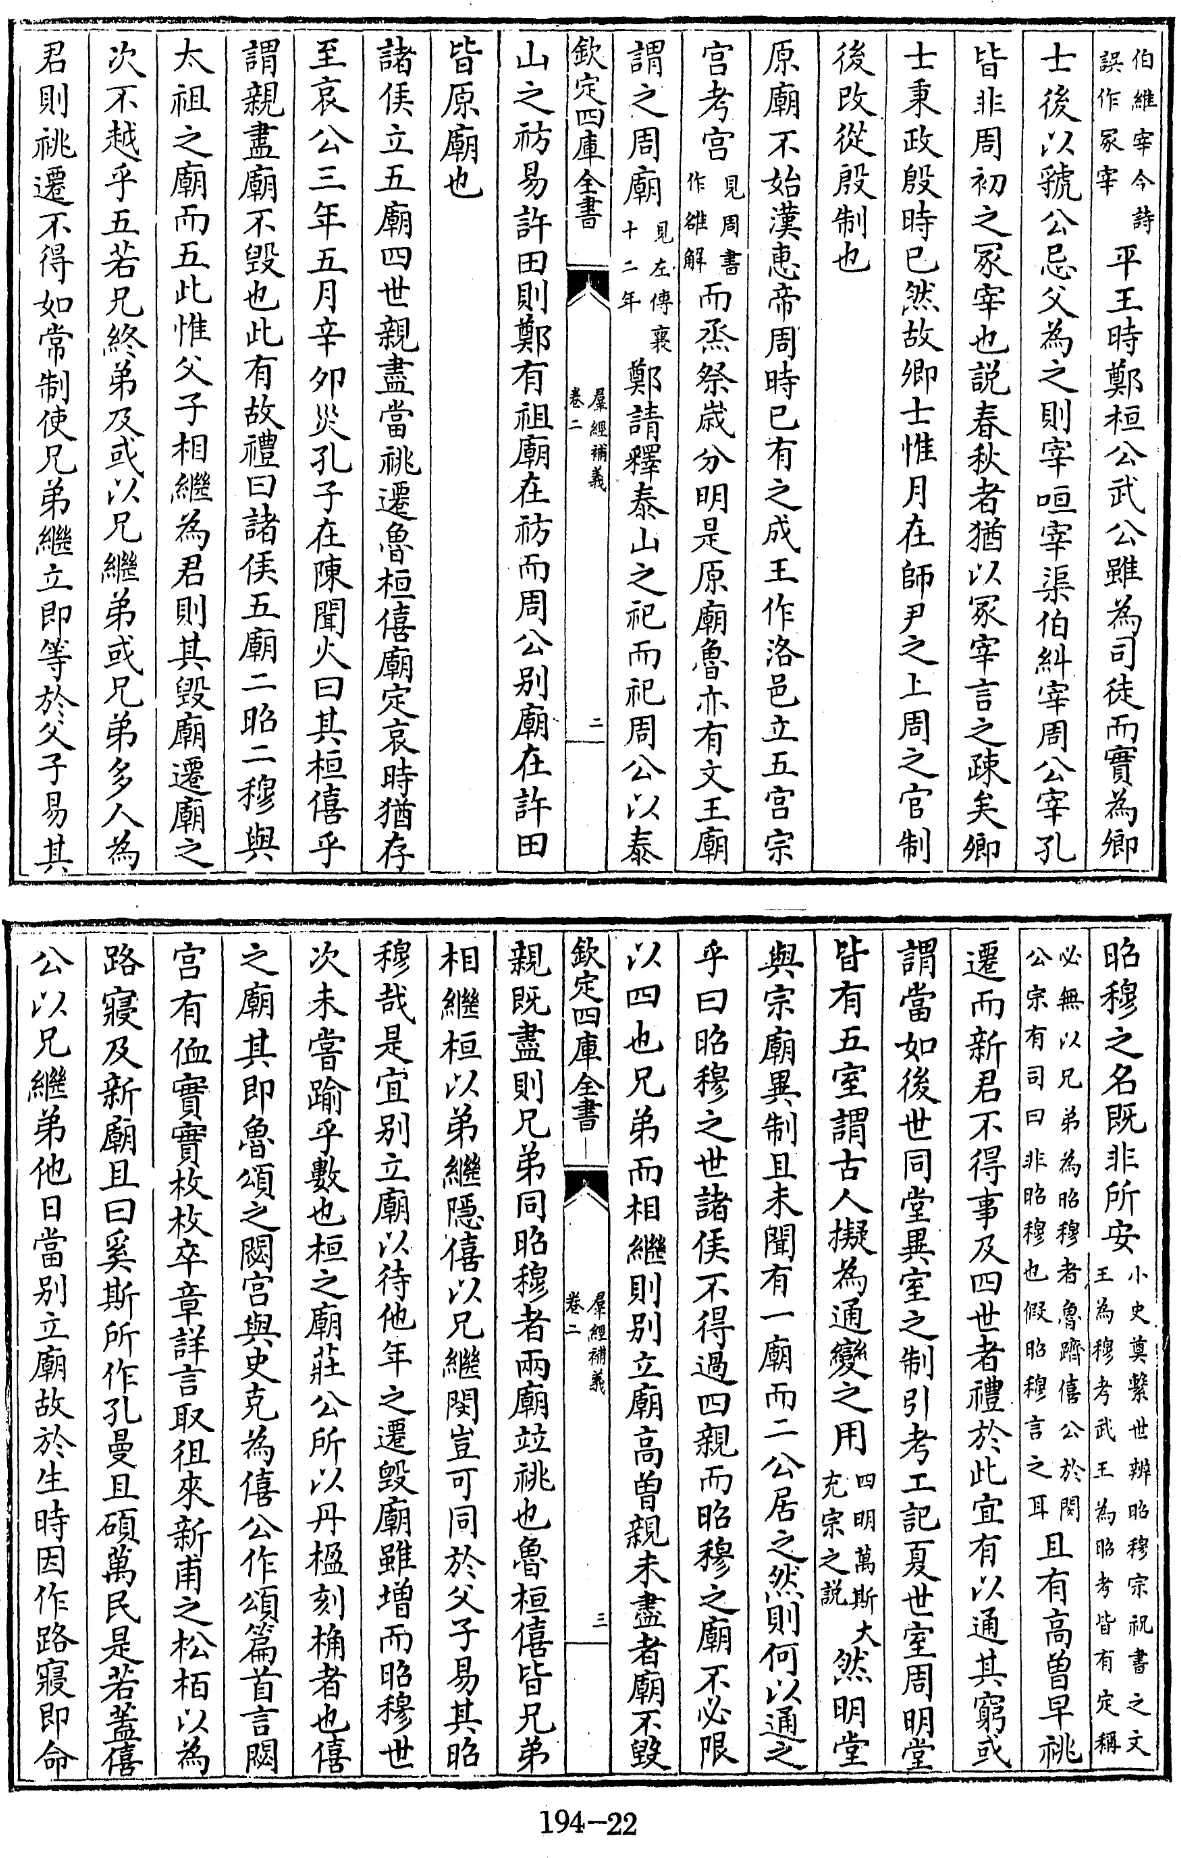 伯維宰今詩
誤作冢宰
平王時鄭桓公武公雖為司徒而實為卿
士後以虢公忌父為之則宰咺宰渠伯糾宰周公宰孔
皆非周初之冢宰也説春秋者猶以冢宰言之疎矣卿
士秉政殷時已然故卿士惟月在師尹之上周之官制
後改從殷制也
原廟不始漢惠帝周時已有之成王作洛邑立五宫宗
宫考宫
見周書
作雒解
而烝祭嵗分明是原廟魯亦有文王廟
謂之周廟
見左傳襄
十二年
鄭請釋泰山之祀而祀周公以泰
欽定四庫全書
羣經補義
卷二
二
山之祊易許田則鄭有祖廟在祊而周公别廟在許田
皆原廟也
諸侯立五廟四世親盡當祧遷魯桓僖廟定哀時猶存
至哀公三年五月辛夘災孔子在陳聞火曰其桓僖乎
謂親盡廟不毁也此有故禮曰諸侯五廟二昭二穆與
太祖之廟而五此惟父子相繼為君則其毁廟遷廟之
次不越乎五若兄終弟及或以兄繼弟或兄弟多人為
君則祧遷不得如常制使兄弟繼立即等於父子易其
昭穆之名既非所安
小史奠繫世辨昭穆宗祝書之文
王為穆考武王為昭考皆有定稱
必無以兄弟為昭穆者魯躋僖公於閔
公宗有司曰非昭穆也假昭穆言之耳
且有高曽早祧
遷而新君不得事及四世者禮於此宜有以通其窮或
謂當如後世同堂異室之制引考工記夏世室周明堂
皆有五室謂古人擬為通變之用
四明萬斯大
充宗之説
然明堂
與宗廟異制且未聞有一廟而二公居之然則何以通之
乎曰昭穆之世諸侯不得過四親而昭穆之廟不必限
以四也兄弟而相繼則别立廟高曽親未盡者廟不毁
欽定四庫全書
羣經補義
卷二
三
親既盡則兄弟同昭穆者兩廟竝祧也魯桓僖皆兄弟
相繼桓以弟繼隱僖以兄繼閔豈可同於父子易其昭
穆哉是宜别立廟以待他年之遷毁廟雖增而昭穆世
次未嘗踰乎數也桓之廟莊公所以丹楹刻桷者也僖
之廟其即魯頌之閟宫與史克為僖公作頌篇首言閟
宫有侐實實枚枚卒章詳言取徂來新甫之松栢以為
路寢及新廟且曰奚斯所作孔曼且碩萬民是若葢僖
公以兄繼弟他日當别立廟故於生時因作路寢即命
194-22